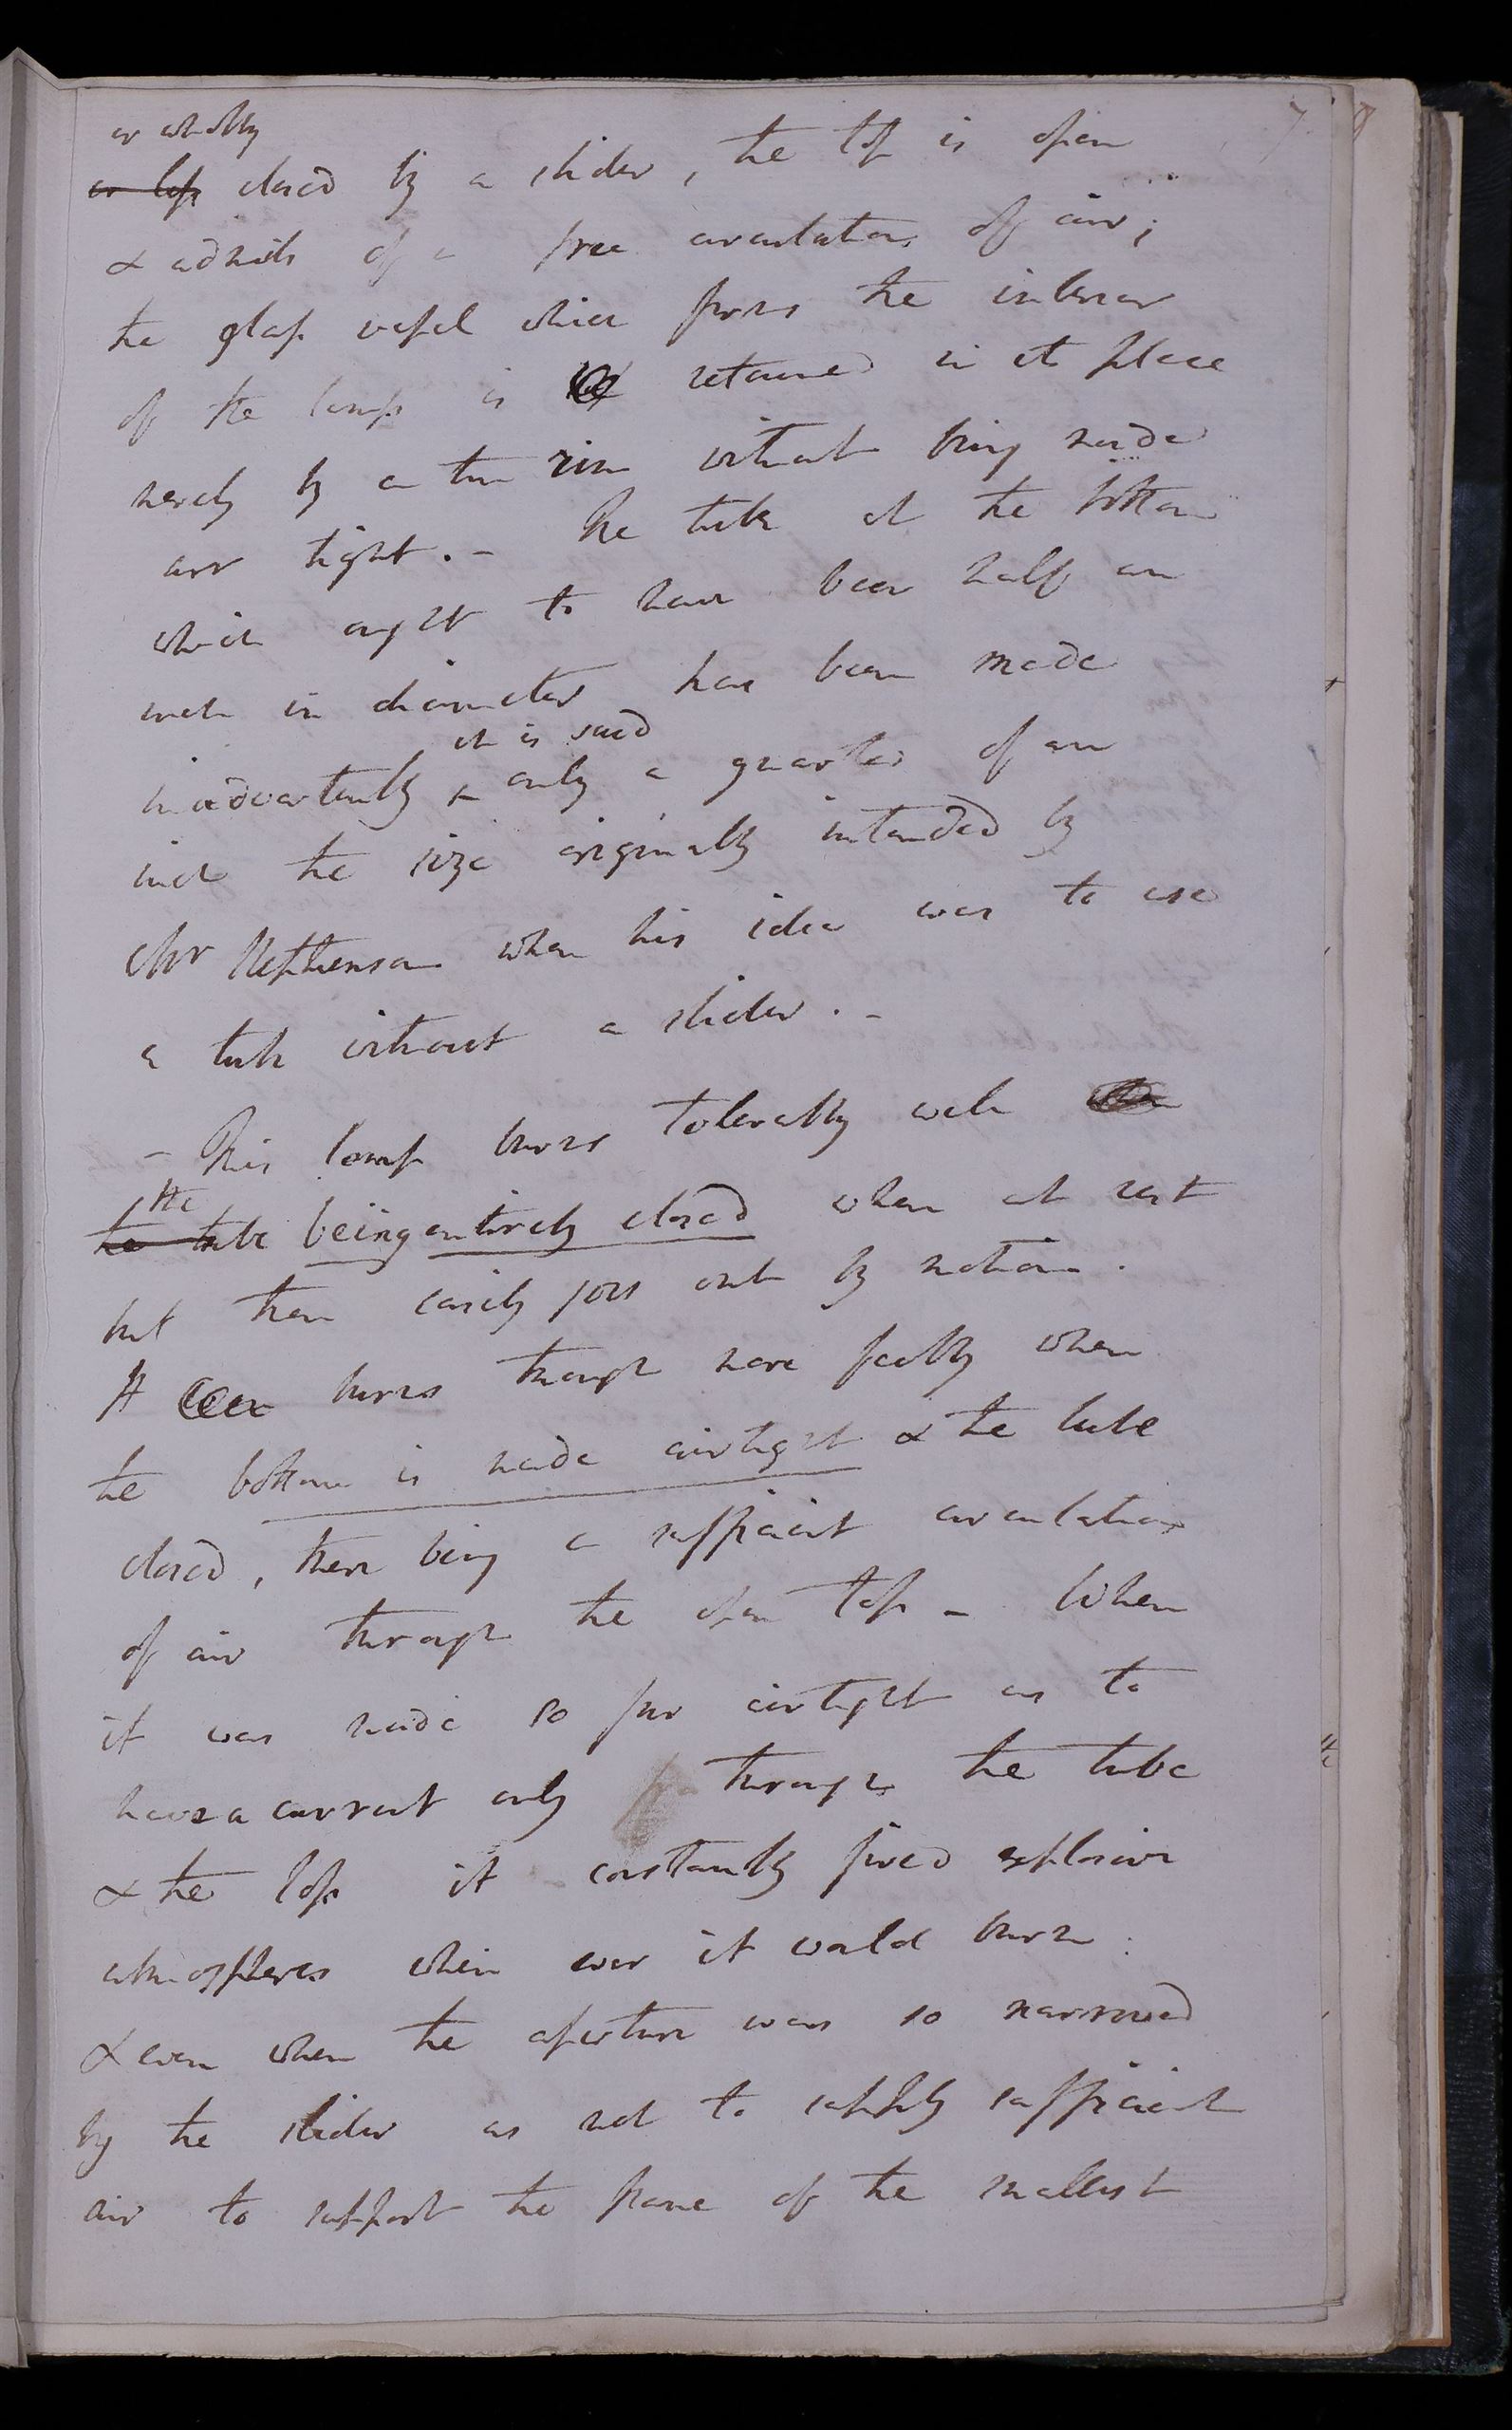 7.
or wholly
or less closed by a slider, the top is open
& admits of a free circulation of air;
the glass vessel which forms the interior
of the lamp is retained in its place
merely by a tin rim without being made
air tight. - The tube at the bottom
which ought to have been half an
inch in diameter have been made
it is said
inadvertently ^ only a quarter of an
inch the size originally intended by
Mr Stephenson when his idea was to use
a tube without a slider. -
- This lamp burns tolerably well
the
the tube being entirely closed when at rest
but then easily goes out by motion.
It burns though more feebly when
the bottom is made airtight & the tube
closed, there being a sufficient circulation
of air through the open top - When
it was made so far airtight as to
have a current only through the tube
& the top it constantly fired explosive
atmospheres when ever it would burn:
& even when the aperture was so narrowed
by the slider as not to supply sufficient
air to support the flame of the smallest